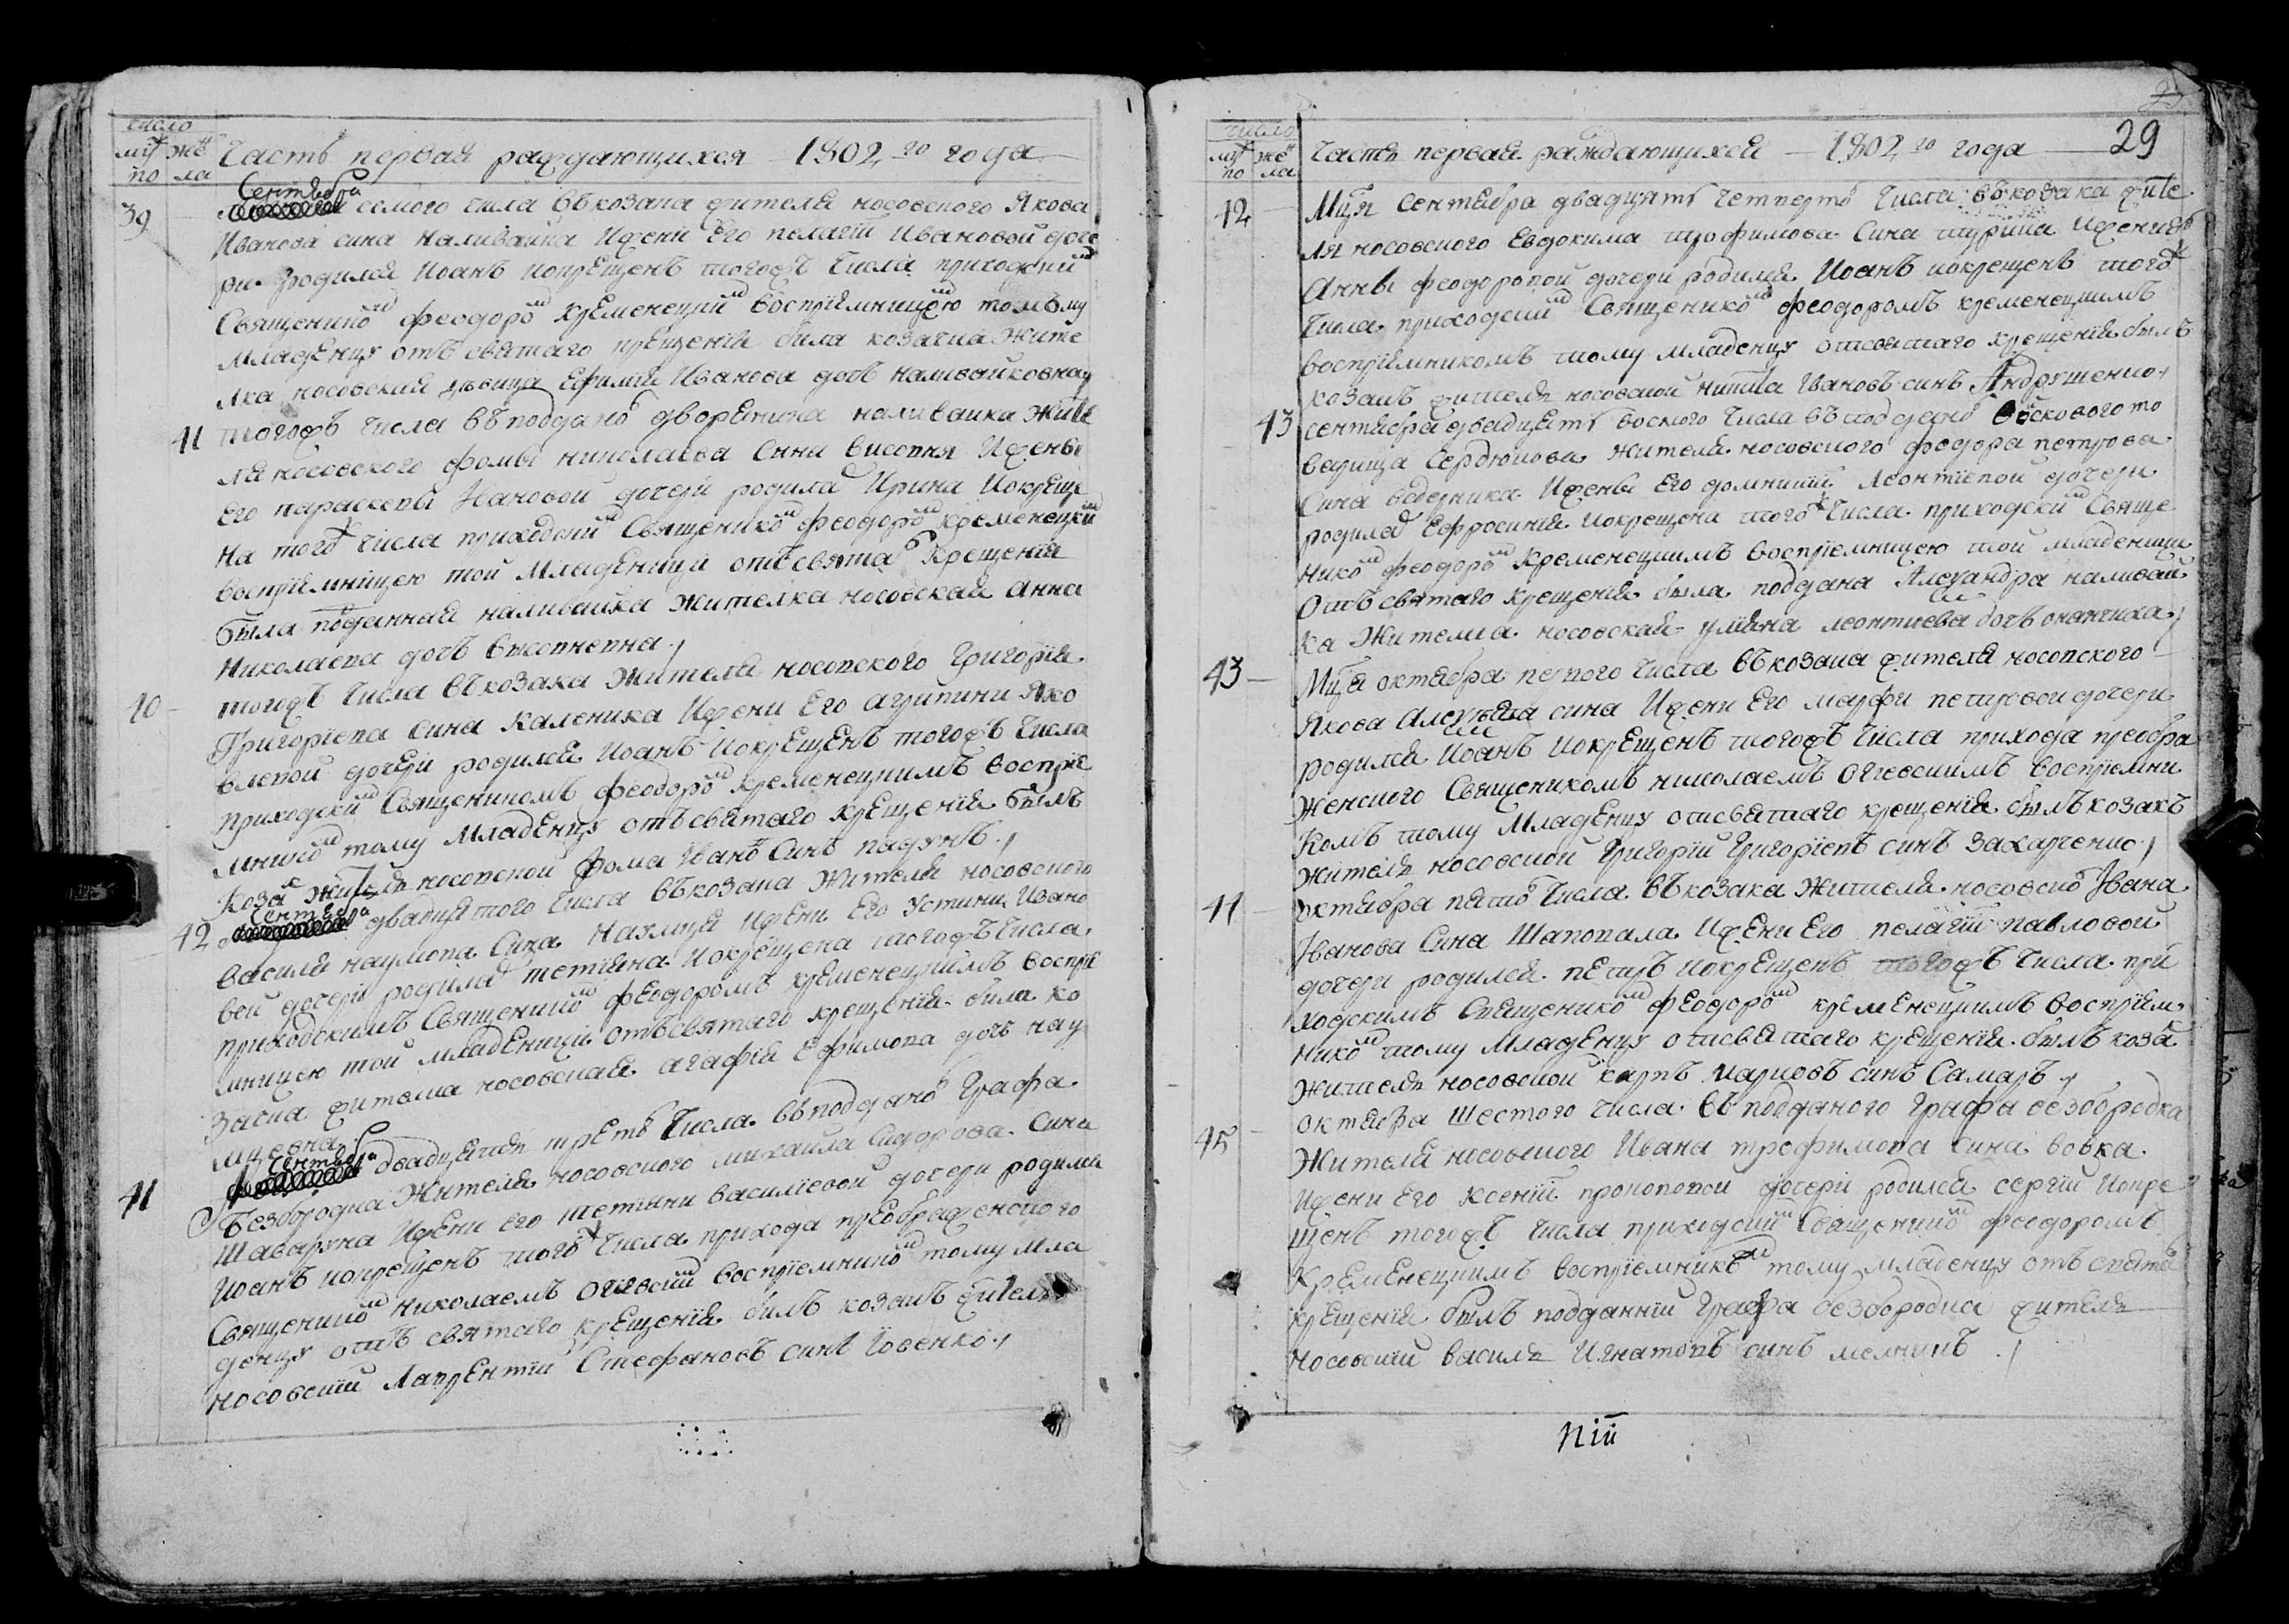 число
муж жен
по ла
Часть первая раждающихся 1802 го года
39
Сентября семого числа въ козака жителя носовского Якова
Иванова сина Наливайка И жени Его пелагіи Ивановой доче
ри родился Иоанъ И крещенъ тогожъ числа приходским
Священиком феодором Кременецким восприемницею тому
Младенцу отъ святаго крещенія била козачка жите
лка носовская дѣвица Ефимія Иванова дочь наливайковна
41 тогожъ числа въ поддано дворенина наливайка жите
ля носовского фомы николаева Сина Висопня И жены
Его параскевы Ивановой дочери родилас Ирина И креще
на тогож числа приходским Священиком феодором Кременецким
восприемницею той Младеници отъ святаго Крещенія
была поданная наливайка Жителка носовская Анна
Николаева дочъ высопневна
40 тогожъ числа въ козака Жителя носовского Григорія
Григоріева сина Каленика И жени Его агрипини Яко
влевой дочери родился Иоанъ И крещенъ тогожъ числа
приходским Священикомъ феодором Кременецкимъ восприе
мником тому Младенцу отъ святаго крещенія былъ
Козак житель носовской фома Иванов Синъ падунъ
42 Сентября двадцятого числа въ козака Жителя носовского
Василя наумова Сина И жени Его Устини Ивано
вой дочери родилас тетяна И крещена тогожъ числа
приходскимъ Священиком феодоромъ кременецкимъ восприе
мницею той младеници отъ святаго крещенія била ко
зачка жителка носовская агафія Ефимова дочъ нау
мцевна
41 Сентября двадцять трето числа въ поддано Графа
Безбородка Жителя носовского михайла Сидорова Сина
Шавкуна И жени его тетяни василіевой дочери родился
Иоанъ И крещенъ тогож числа прихода преображенского
Священиком николаемъ Огіевским восприемником тому мла
денцу отъ святаго крещенія билъ козакъ житель
носовский Лаврентій Стефановъ синъ Говенко
29
число
муж жен
по ла
Часть первая раждающихся 1802 го года
42 Мця Сентября двадцять четверто числа въ козака жите
ля носовского Евдокима трофимова Сина турика И жени его
Анны феодоровой дочери родился Иоанъ и крещенъ тогож
числа приходским Священиком феодоромъ кременецкимъ
восприемникомъ тому младенцу отъ святаго крещенія былъ
козакъ житель носовской никита Ивановъ синъ Андрушенко
43 сентября двадцять восмого числа въ поддано Войскового то
варища Сердюкова жителя носовского федора петрова
Сина бедерника И жены Его домникии Леонтіевой дочери
родилас Ефросинія И крещена тогож числа приходским Свяще
ником феодором Кременецкимъ восприемницею той младеници
Отъ святаго крещенія была поддана Александра наливай
ка Жителка носовская уляна леонтиева дочъ онанчиха
43 Мця октября первого числа въ козака жителя носовского
Якова Алексѣева сина И жени Его марфи петровой дочери
родился Иоанъ И крещенъ тогожъ числа прихода преобра
женского Священикомъ николаемъ Огіевскимъ восприемни
комъ тому Младенцу отъ святаго крещенія былъ козакъ
житель носовской Григорій Григоріевъ синъ Захарченко
44 октября пято числа въ козака Жителя носовско Ивана
Иванова Сина Шаповала И жени Его пелагіи павловой
дочери родился петръ И крещенъ тогожъ числа при
ходскимъ Священиком феодором кременецкимъ восприем
ником тому Младенцу отъ святаго крещенія былъ козак
житель носовской карпъ Марковъ синъ Самаръ
45 октября Шестого числа въ подданого графа безбородка
Жителя носовского Ивана трофимова Сина вовка
И жени Его ксеніи прокоповой дочери родился сергій И кре
щенъ тогожъ числа приходским Священиком феодоромъ
Кременецкимъ восприемником тому младенцу отъ свята
крещенія былъ подданній графа безбородка житель
носовскій василь Игнатовъ синъ мелникъ